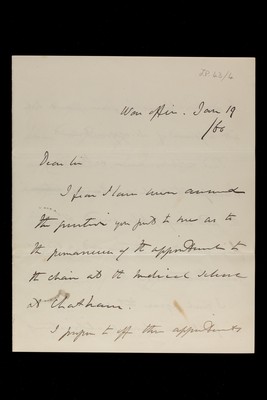 War Office. Jan 19
/60
Dear Sir
I fear I have never answered
the question you put to me as to
the permanence of the appointment to
the chair at the Medical School
at Chatham.
I propose to offer these appointments